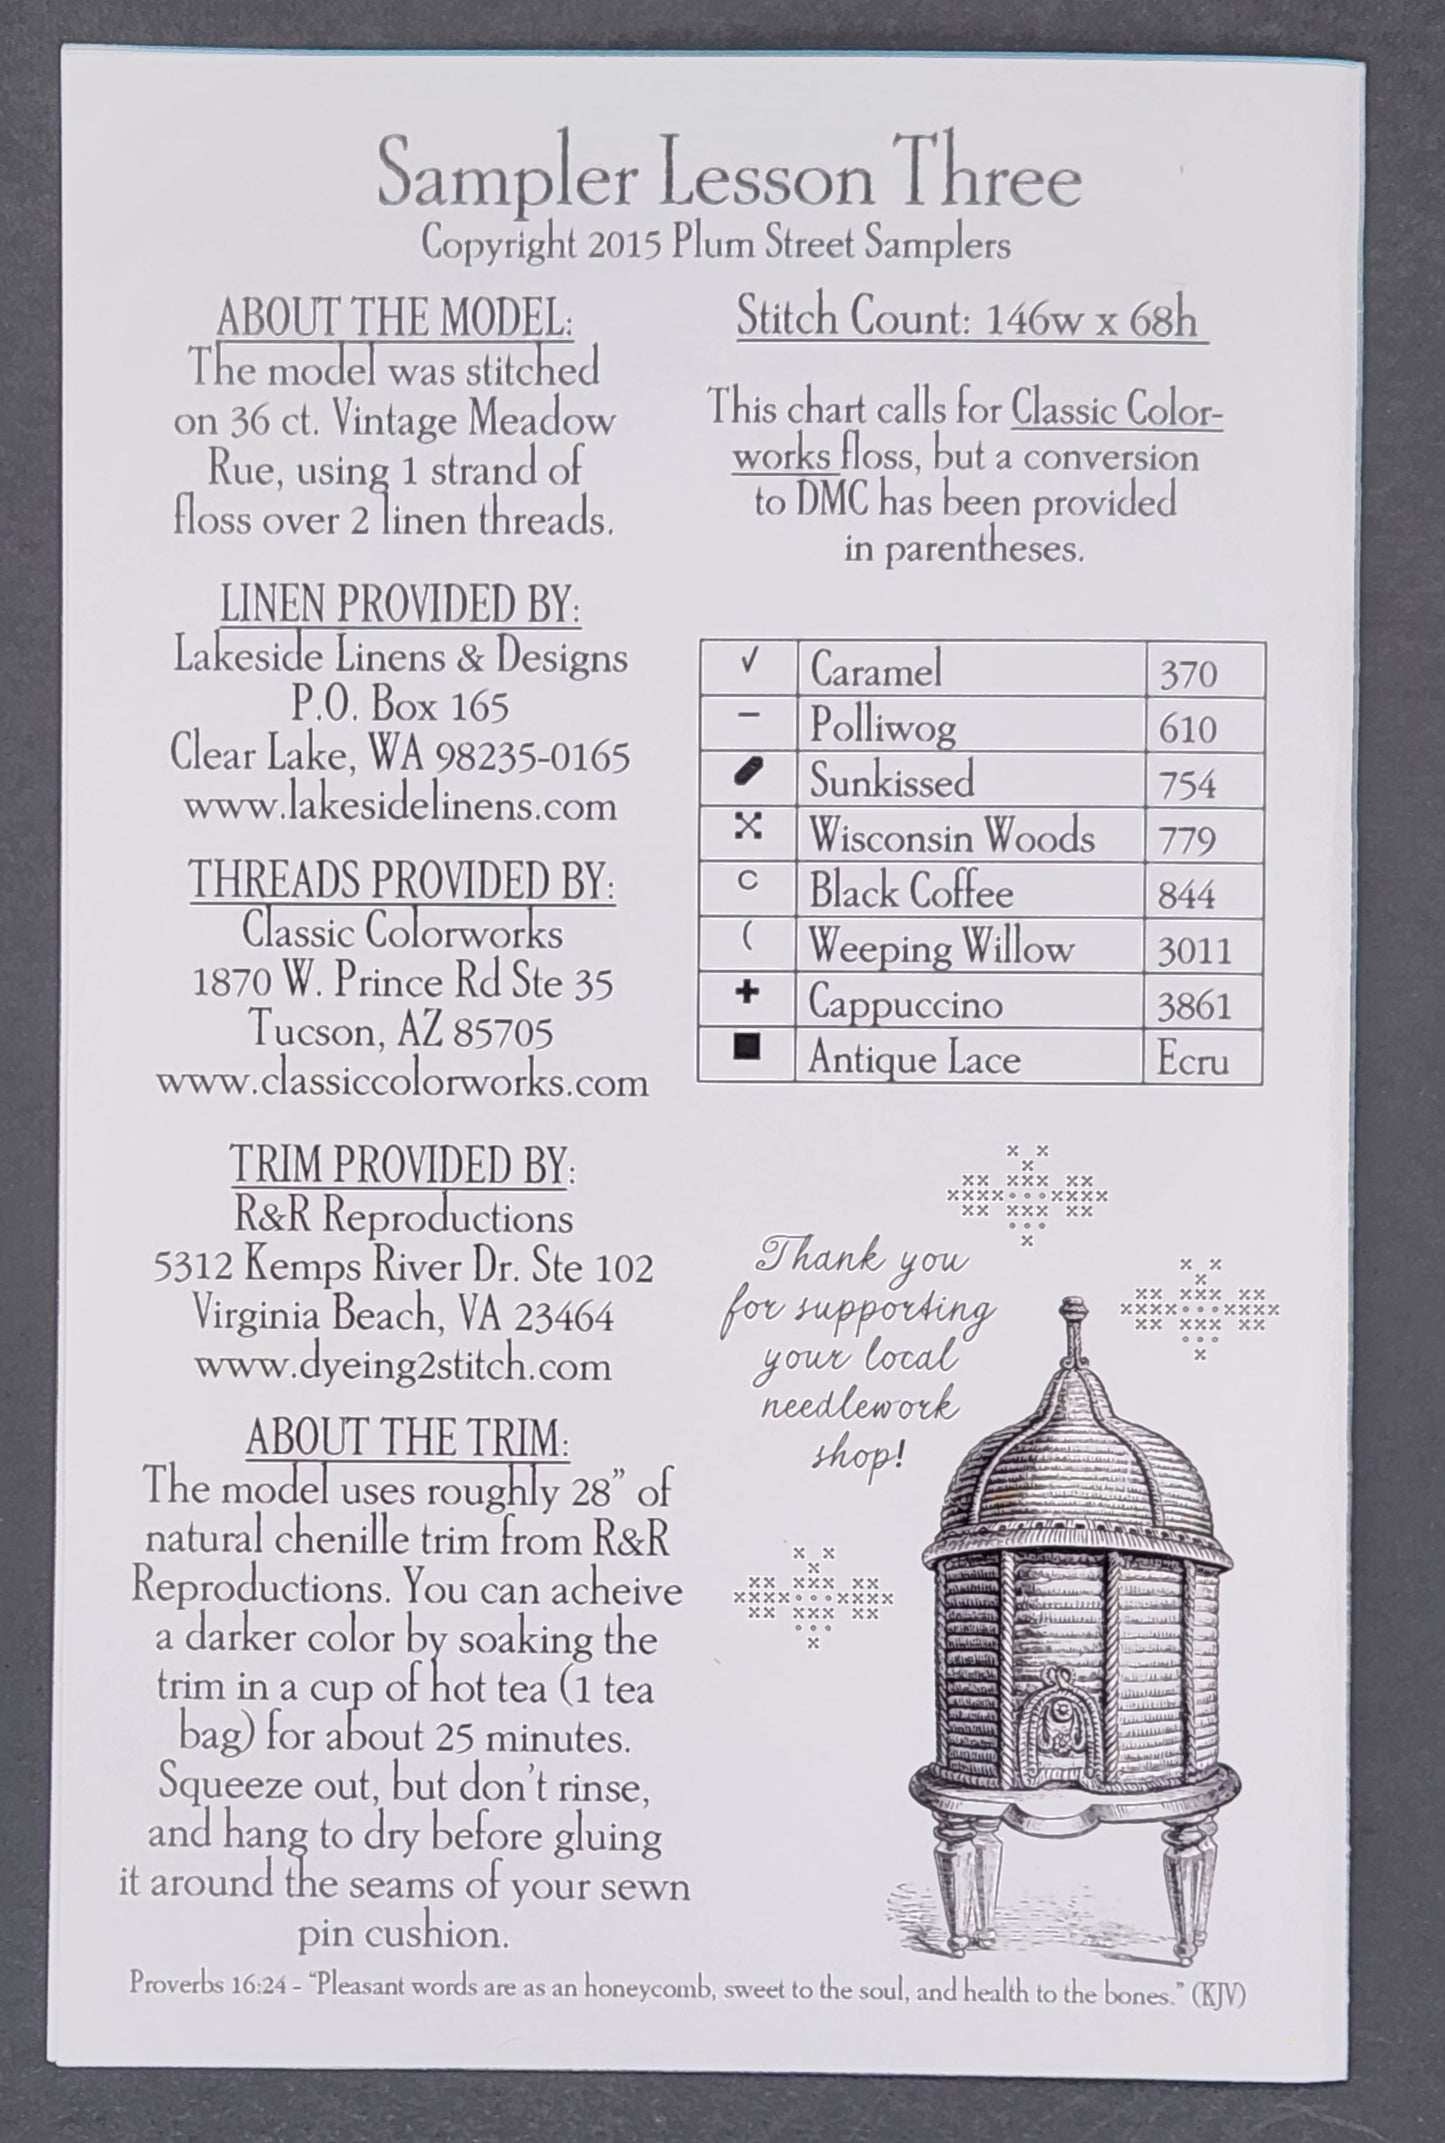 Sampler Lesson Three
Copyright 2015 Plum Street Samplers
ABOUT THE MODEL:
The model was stitched
on 36 ct. Vintage Meadow
Rue, using 1 strand of
floss over 2 linen threads.
LINEN PROVIDED BY:
Lakeside Linens & Designs
P.O. Box 165
Clear Lake, WA 98235-0165
www.lakesidelinens.com
THREADS PROVIDED BY:
Classic Colorworks
1870 W. Prince Rd Ste 35
Tucson, AZ 85705
www.classiccolorworks.com
TRIM PROVIDED BY:
R&R Reproductions
5312 Kemps River Dr. Ste 102
Virginia Beach, VA 23464
www.dyeing2stitch.com
ABOUT THE TRIM:
The model uses roughly 28” of
natural chenille trim from R&R
Reproductions. You can acheive
a darker color by soaking the
trim in a cup of hot tea (1 tea
bag) for about 25 minutes.
Squeeze out, but don't rinse,
and hang to dry before gluing
it around the seams of your sewn
pin cushion.
Stitch Count: 146w x 68h
This chart calls for Classic Color-
works floss, but a conversion
to DMC has been provided
in parentheses.
√ Caramel 370
– Polliwog 610
Sunkissed 754
Wisconsin Woods 779
C Black Coffee 844
( Weeping Willow 3011
✚ Cappuccino 3861
■ Antique Lace Ecru
Thank you
for supporting
your local
needlework
shop!
Proverbs 16:24 - “Pleasant words are as an honeycomb, sweet to the soul, and health to the bones.” (KJV)